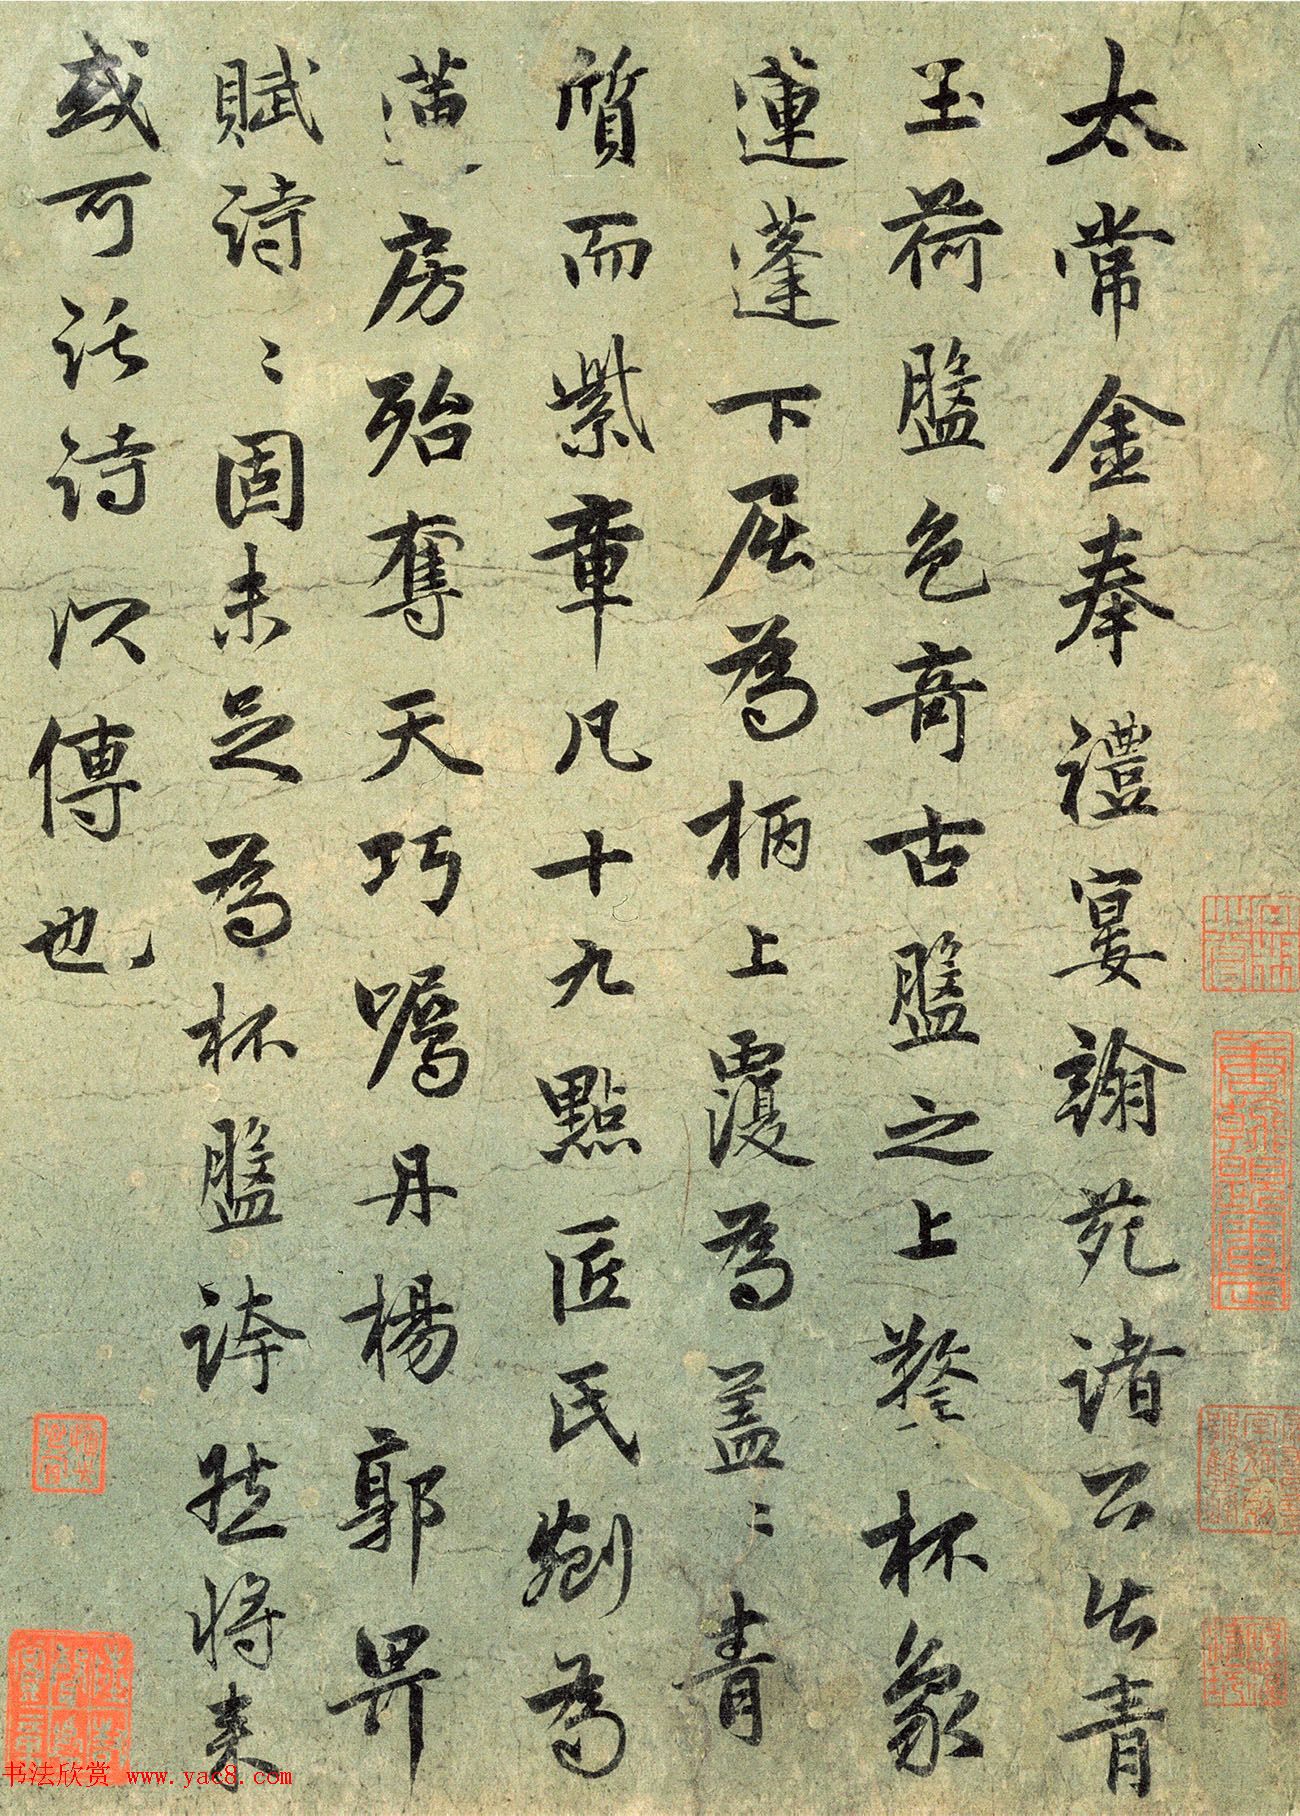 太常金奉禮宴翰苑諸公出青
玉荷盤色奇古盤之上擎杯象
蓮蓬下屈為柄上覆為盖〻青
質而紫章凡十九點匠氏劚為
蓮房殆奪天巧囑丹楊郭畀
賦詩〻固未足為杯盤誇然將来
或可託詩以傳也
书法欣赏 www.yac8.com